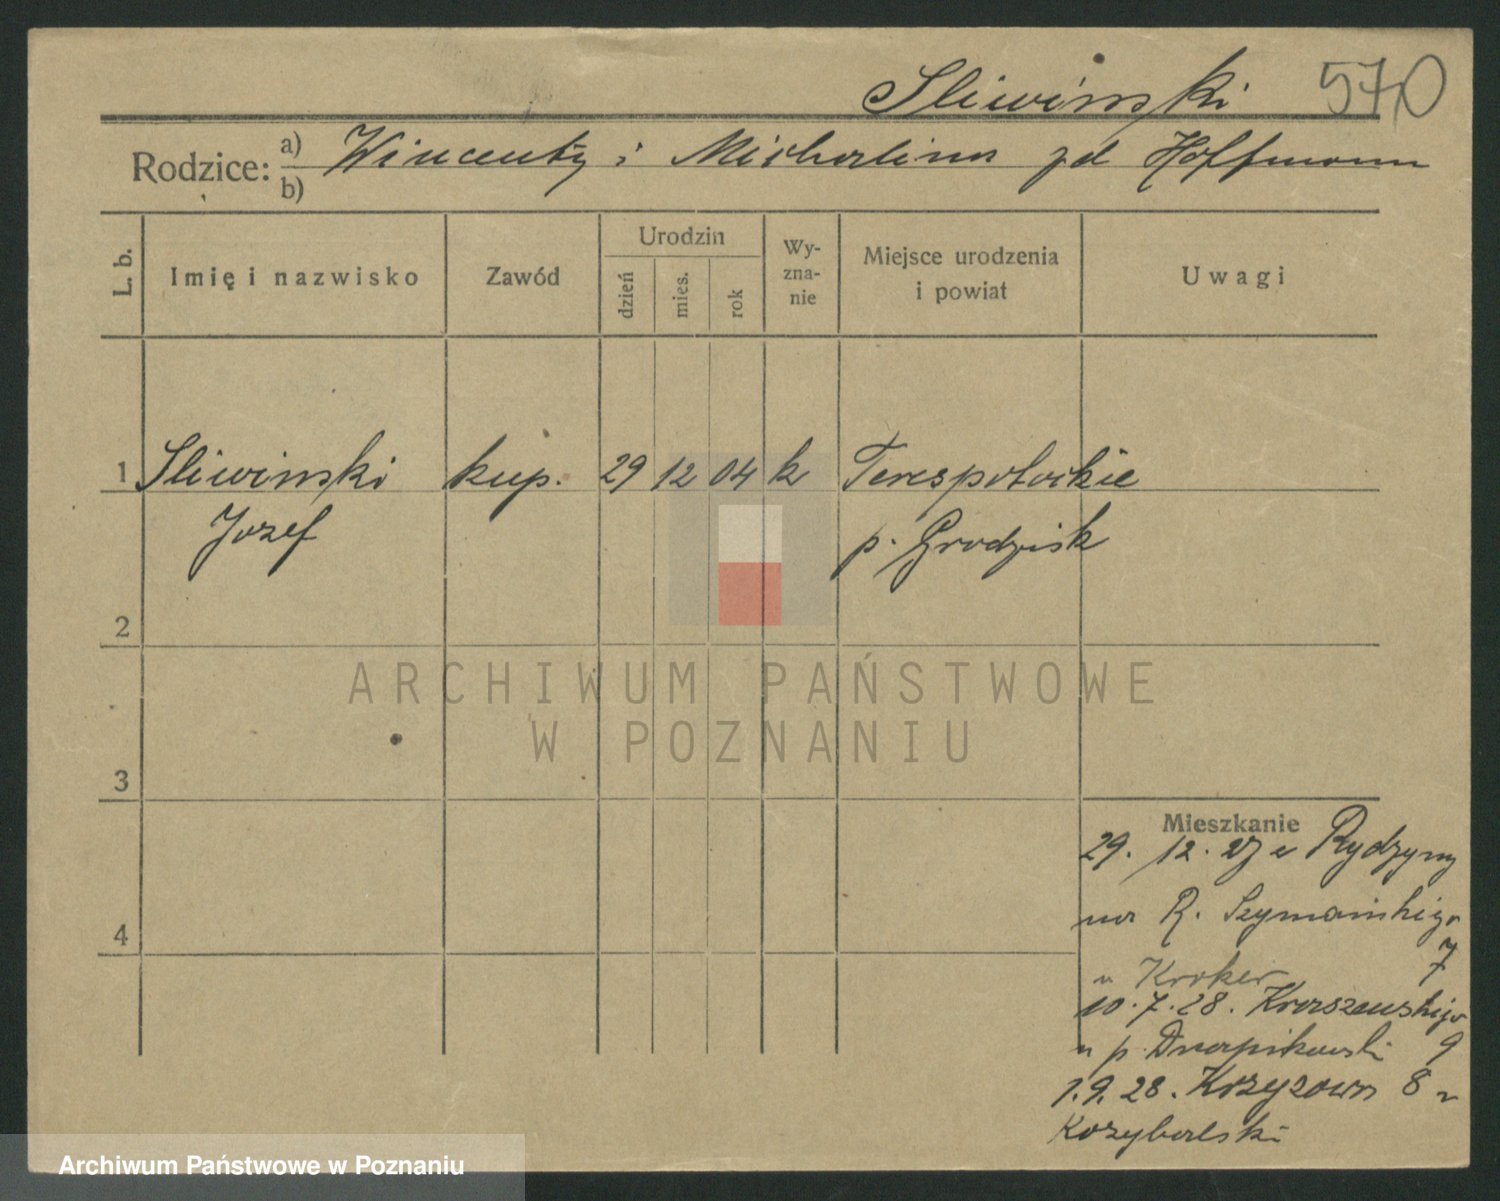 Sliwiński 570
Rodzice: a) Wincenty i Michalina zd Hoffmann
b)
L. b.
Imię i nazwisko
Zawód
Urodzin
dzień
mies.
rok
Wy-
zna-
nie
Miejsce urodzenia
i powiat
Uwagi
1 Sliwinski kup. 29 12 04 k Terespotockie
Jozef p. Grodzisk
2
3
4
ARCHIWUM PAŃSTWOWE
W POZNANIU
Mieszkanie
29. 12. 27 z Rydzyny
na R. Szymańskiego
7
u Kroker
10.7.28. Kraszewskiego
u p. 9
1.9.28. Krzyzowa 8 u
Kozybalski
Archiwum Państwowe w Poznaniu